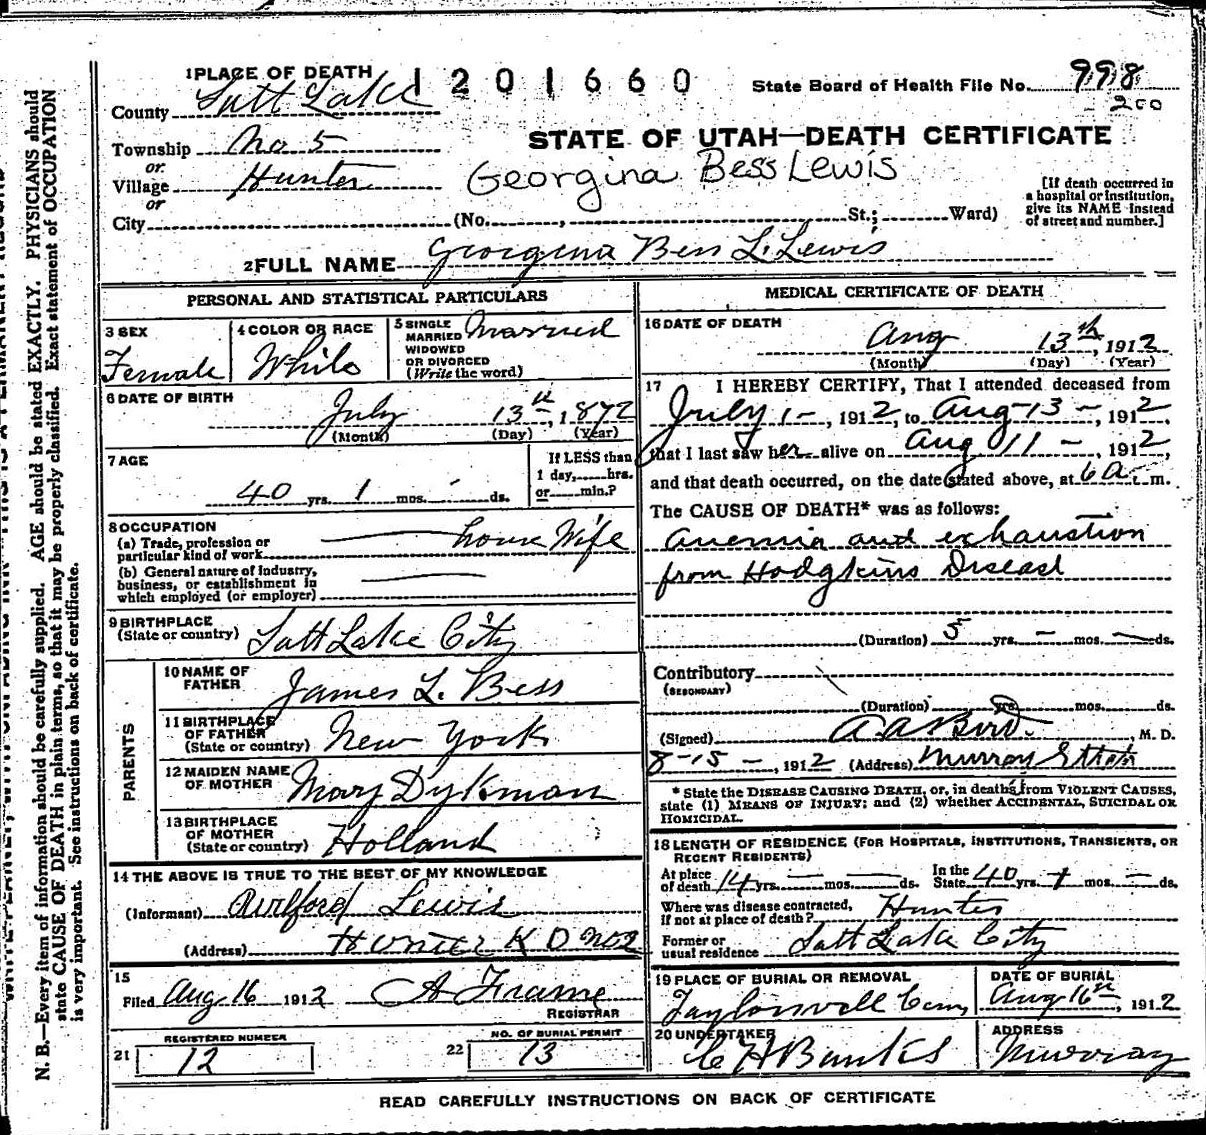 1 PLACE OF DEATH 1201660 State Board of Health File No. 998
County Salt Lake 200
Township No 5 STATE OF UTAH—DEATH CERTIFICATE
or
Village Hunter Georgina Bess Lewis
or
City (No. , St.; Ward)
[If death occurred in
a hospital or institution,
give its NAME instead
of street and number.]
2 FULL NAME Georgina Bess L. Lewis
PERSONAL AND STATISTICAL PARTICULARS
3 SEX Female
4 COLOR OR RACE White
5 SINGLE
MARRIED
WIDOWED
OR DIVORCED
(Write the word) Married
6 DATE OF BIRTH
July 13th, 1872
(Month) (Day) (Year)
7 AGE
40 yrs. 1 mos. - ds.
If LESS than
1 day, hrs.
or min.?
8 OCCUPATION
(a) Trade, profession or
particular kind of work house Wife
(b) General nature of industry,
business, or establishment in
which employed (or employer)
9 BIRTHPLACE
(State or country) Salt Lake City
PARENTS
10 NAME OF
FATHER James L. Bess
11 BIRTHPLACE
OF FATHER
(State or country) New York
12 MAIDEN NAME
OF MOTHER Mary Dykman
13 BIRTHPLACE
OF MOTHER
(State or country) Holland
14 THE ABOVE IS TRUE TO THE BEST OF MY KNOWLEDGE
(Informant) Lewis
(Address) Hunter D No 2
15
Filed Aug 16 1912 A Frame
REGISTRAR
REGISTERED NUMBER
21 12
NO. OF BURIAL PERMIT
22 13
MEDICAL CERTIFICATE OF DEATH
16 DATE OF DEATH
Aug 13th, 1912
(Month) (Day) (Year)
17 I HEREBY CERTIFY, That I attended deceased from
July 1 -, 1912, to Aug - 13 -, 1912,
that I last saw her alive on Aug 11 -, 1912,
and that death occurred, on the date stated above, at 6 a. m.
The CAUSE OF DEATH* was as follows:
Anemia and exhaustion
from Hodgkins Disease
(Duration) 5 yrs. - mos. - ds.
Contributory
(SECONDARY)
(Duration) yrs. mos. ds.
(Signed) A. A. Bird. , M. D.
8-15-, 1912 (Address) Murray Utah
* State the DISEASE CAUSING DEATH, or, in deaths from VIOLENT CAUSES,
state (1) MEANS OF INJURY; and (2) whether ACCIDENTAL, SUICIDAL OR
HOMICIDAL.
18 LENGTH OF RESIDENCE (FOR HOSPITALS, INSTITUTIONS, TRANSIENTS, OR
RECENT RESIDENTS)
At place
of death 14 yrs. mos. ds. In the
State 40 yrs. 1 mos. - ds.
Where was disease contracted,
if not at place of death? Hunter
Former or
usual residence Salt Lake City
19 PLACE OF BURIAL OR REMOVAL
Taylorsvill Cem
DATE OF BURIAL
Aug 16th, 1912
20 UNDERTAKER
C H Banks
ADDRESS
Murray
READ CAREFULLY INSTRUCTIONS ON BACK OF CERTIFICATE
N. B.—Every item of information should be carefully supplied. AGE should be stated EXACTLY. PHYSICIANS should
state CAUSE OF DEATH in plain terms, so that it may be properly classified. Exact statement of OCCUPATION
is very important. See instructions on back of certificate.